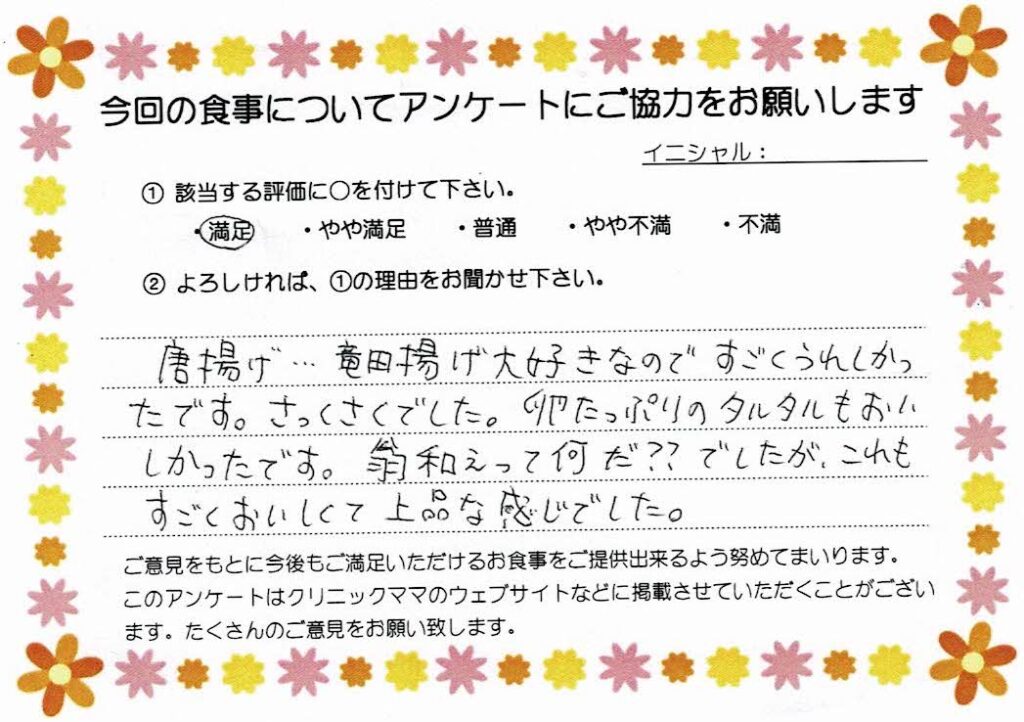 今回の食事についてアンケートにご協力をお願いします
イニシャル：
① 該当する評価に○を付けて下さい。
・満足 ・やや満足 ・普通 ・やや不満 ・不満
② よろしければ、①の理由をお聞かせ下さい。
唐揚げ…竜田揚げ大好きなので すごくうれしかっ
たです。さっくさくでした。卵たっぷりのタルタルもおい
しかったです。翁和えって何だ??でしたが、これも
すごくおいしくて上品な感じでした。
ご意見をもとに今後もご満足いただけるお食事をご提供出来るよう努めてまいります。
このアンケートはクリニックママのウェブサイトなどに掲載させていただくことがござい
ます。たくさんのご意見をお願い致します。